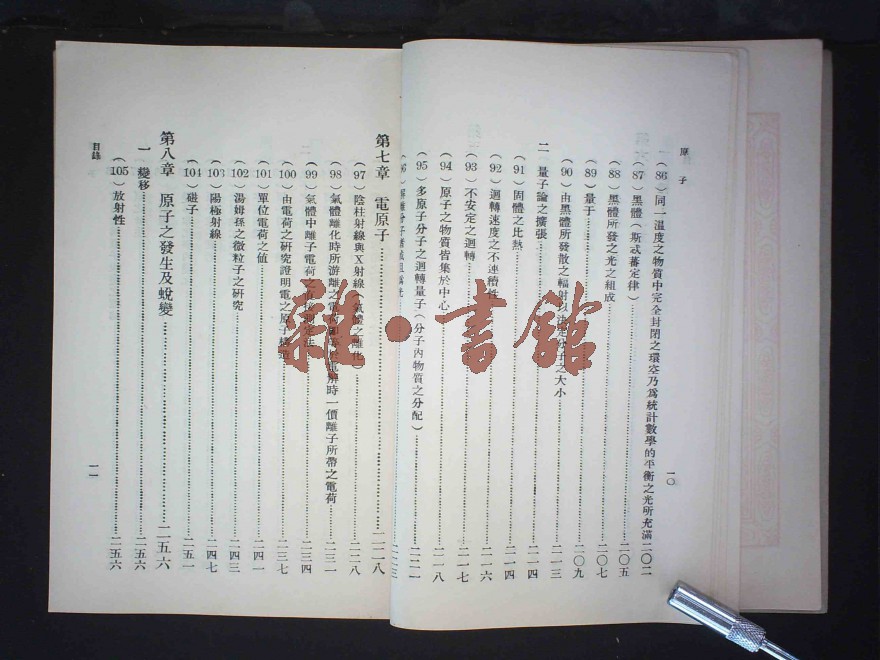 原子
一〇
(86) 同一溫度之物質中完全封閉之環空乃爲統計數學的平衡之光所充滿 二〇二
(87) 黑體(斯忒蕃定律) 二〇五
(88) 黑體所發之光之組成 二〇七
(89) 量于 二〇九
(90) 由黑體所發散之輻射以決定分子之大小 二一三
二 量子論之擴張 二一四
(91) 固體之比熱 二一四
(92) 迴轉速度之不連續性 二一六
(93) 不安定之迴轉 二一七
(94) 原子之物質皆集於中心 二一八
(95) 多原子分子之迴轉量子(分子內物質之分配) 二二一
第七章 電原子 二二八
(97) 陰柱射線與X射線(氣體之離化) 二二八
(98) 氣體離化時所游離之電荷 電解時一價離子所帶之電荷 二三一
(99) 氣體中離子電荷之 法 二三四
(100) 由電荷之研究證明電之原子構造 二三七
(101) 單位電荷之値 二四一
(102) 湯姆孫之微粒子之研究 二四三
(103) 陽極射線 二四七
(104) 磁子 二五一
第八章 原子之發生及蛻變 二五六
一 變移 二五六
(105) 放射性 二五六
目錄
一一
雜·書館